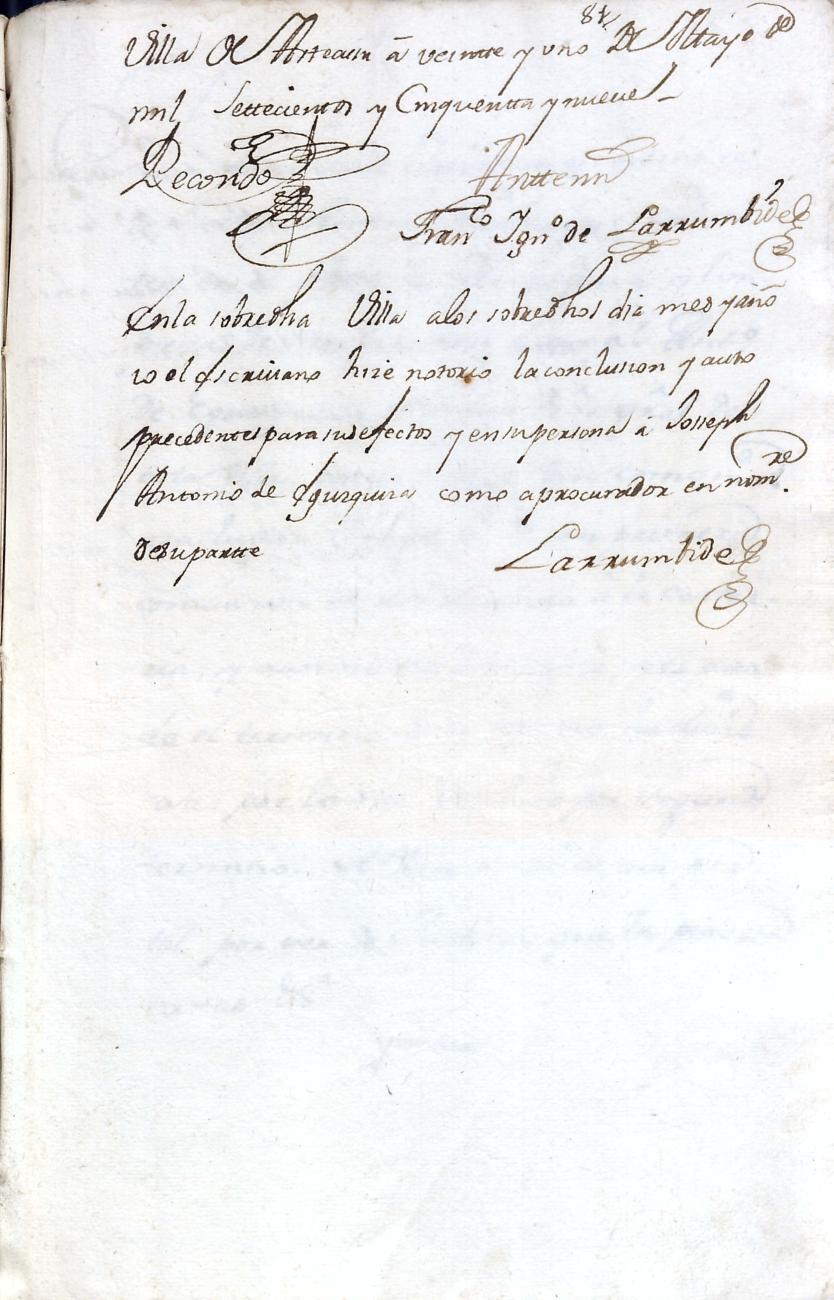 84
Villa de Arteasu â veinte y uno De Mayo de
mil settecientos y Cinquentta y nueve
Recondo Antte mi
Franco Ygno de Larrumbide
En la sobredha Villa a los sobredhos dia mes y año
io el escrivano hize notorio la conclusion y auto
precedentes para sus efectos y en su persona a Joseph
Antonio de Eguzquiza como a procurador en nomre.
de su partte Larrumbide